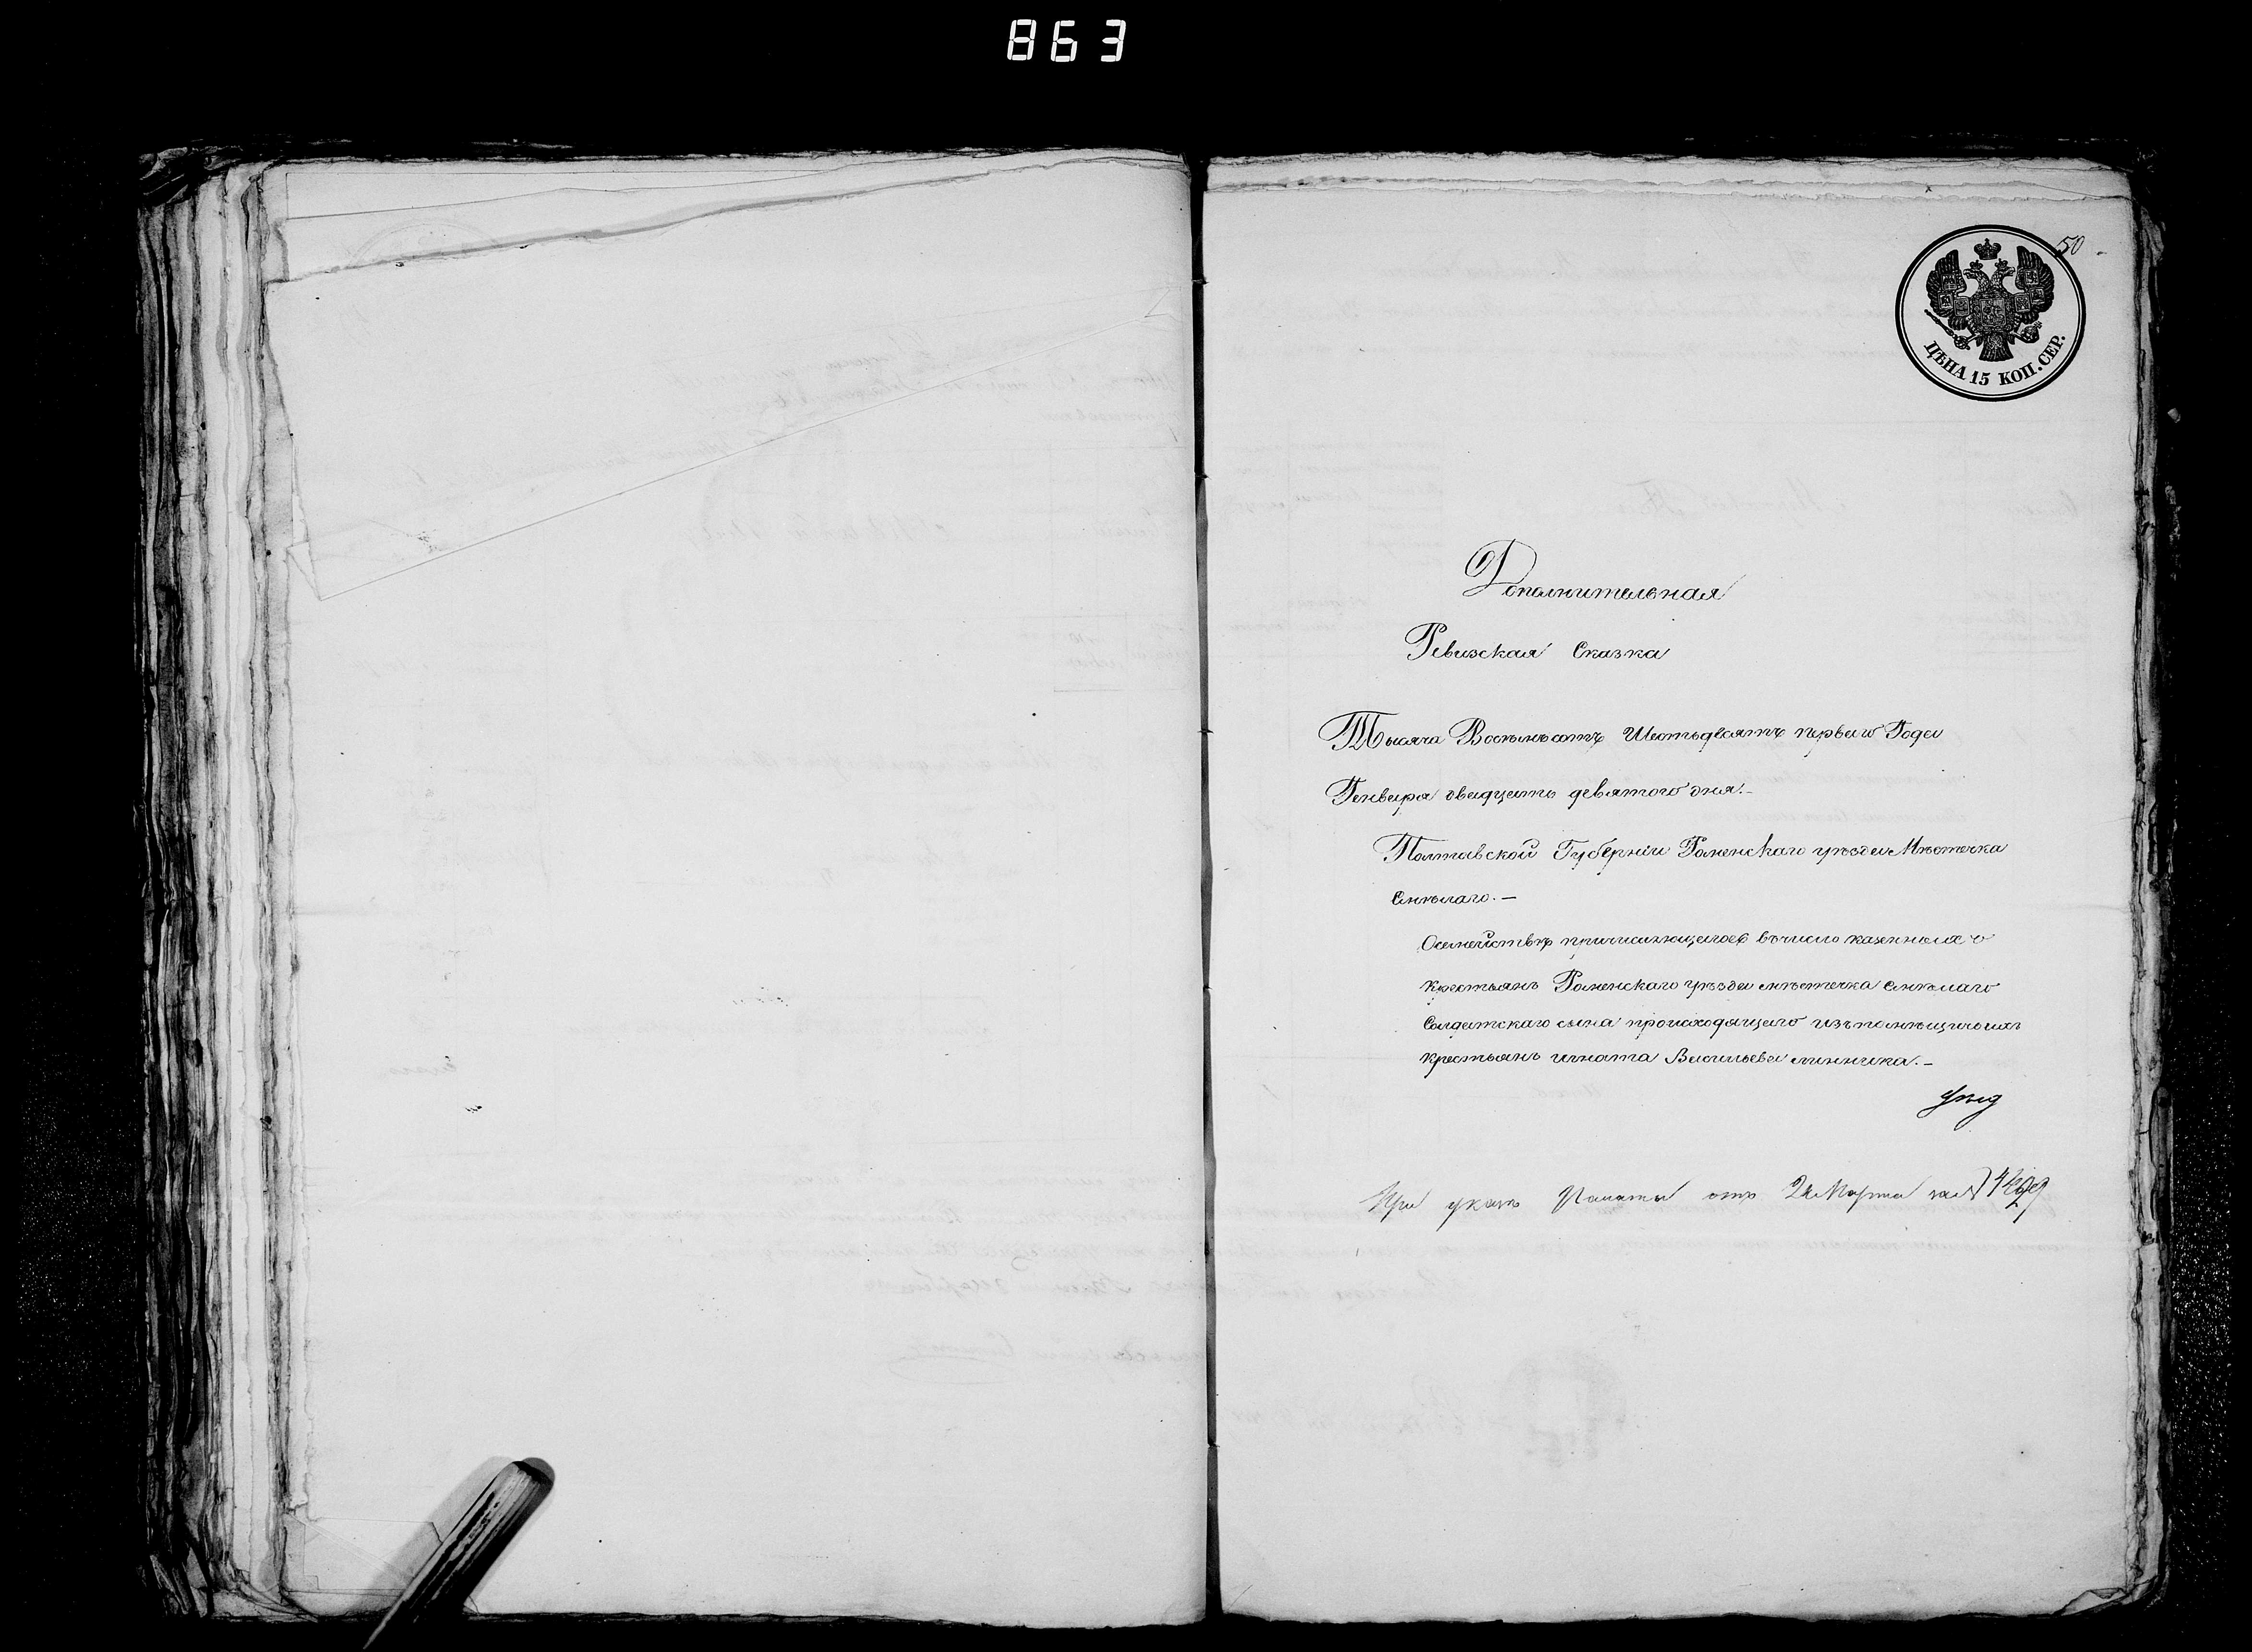 863
50
ЦѢНА 15 КОП. СЕР.
Дополнительная
Ревизская Сказка
Тысяча Восемьсотъ Шестьдесятъ перваго Года
Генваря двадцать девятого дня.-
Полтавской Губерніи Роменскаго уѣзда Мѣстечка
Смѣлаго.-
О семействѣ причисляющегося въ число казенныхъ
крестьянъ Роменскаго уѣзда мѣстечка Смѣлаго
Солдатскаго сына происходящего изъ помѣщичьихъ
крестьянъ Игната Васильева Линника.-
При указѣ Палаты отъ Марта за №